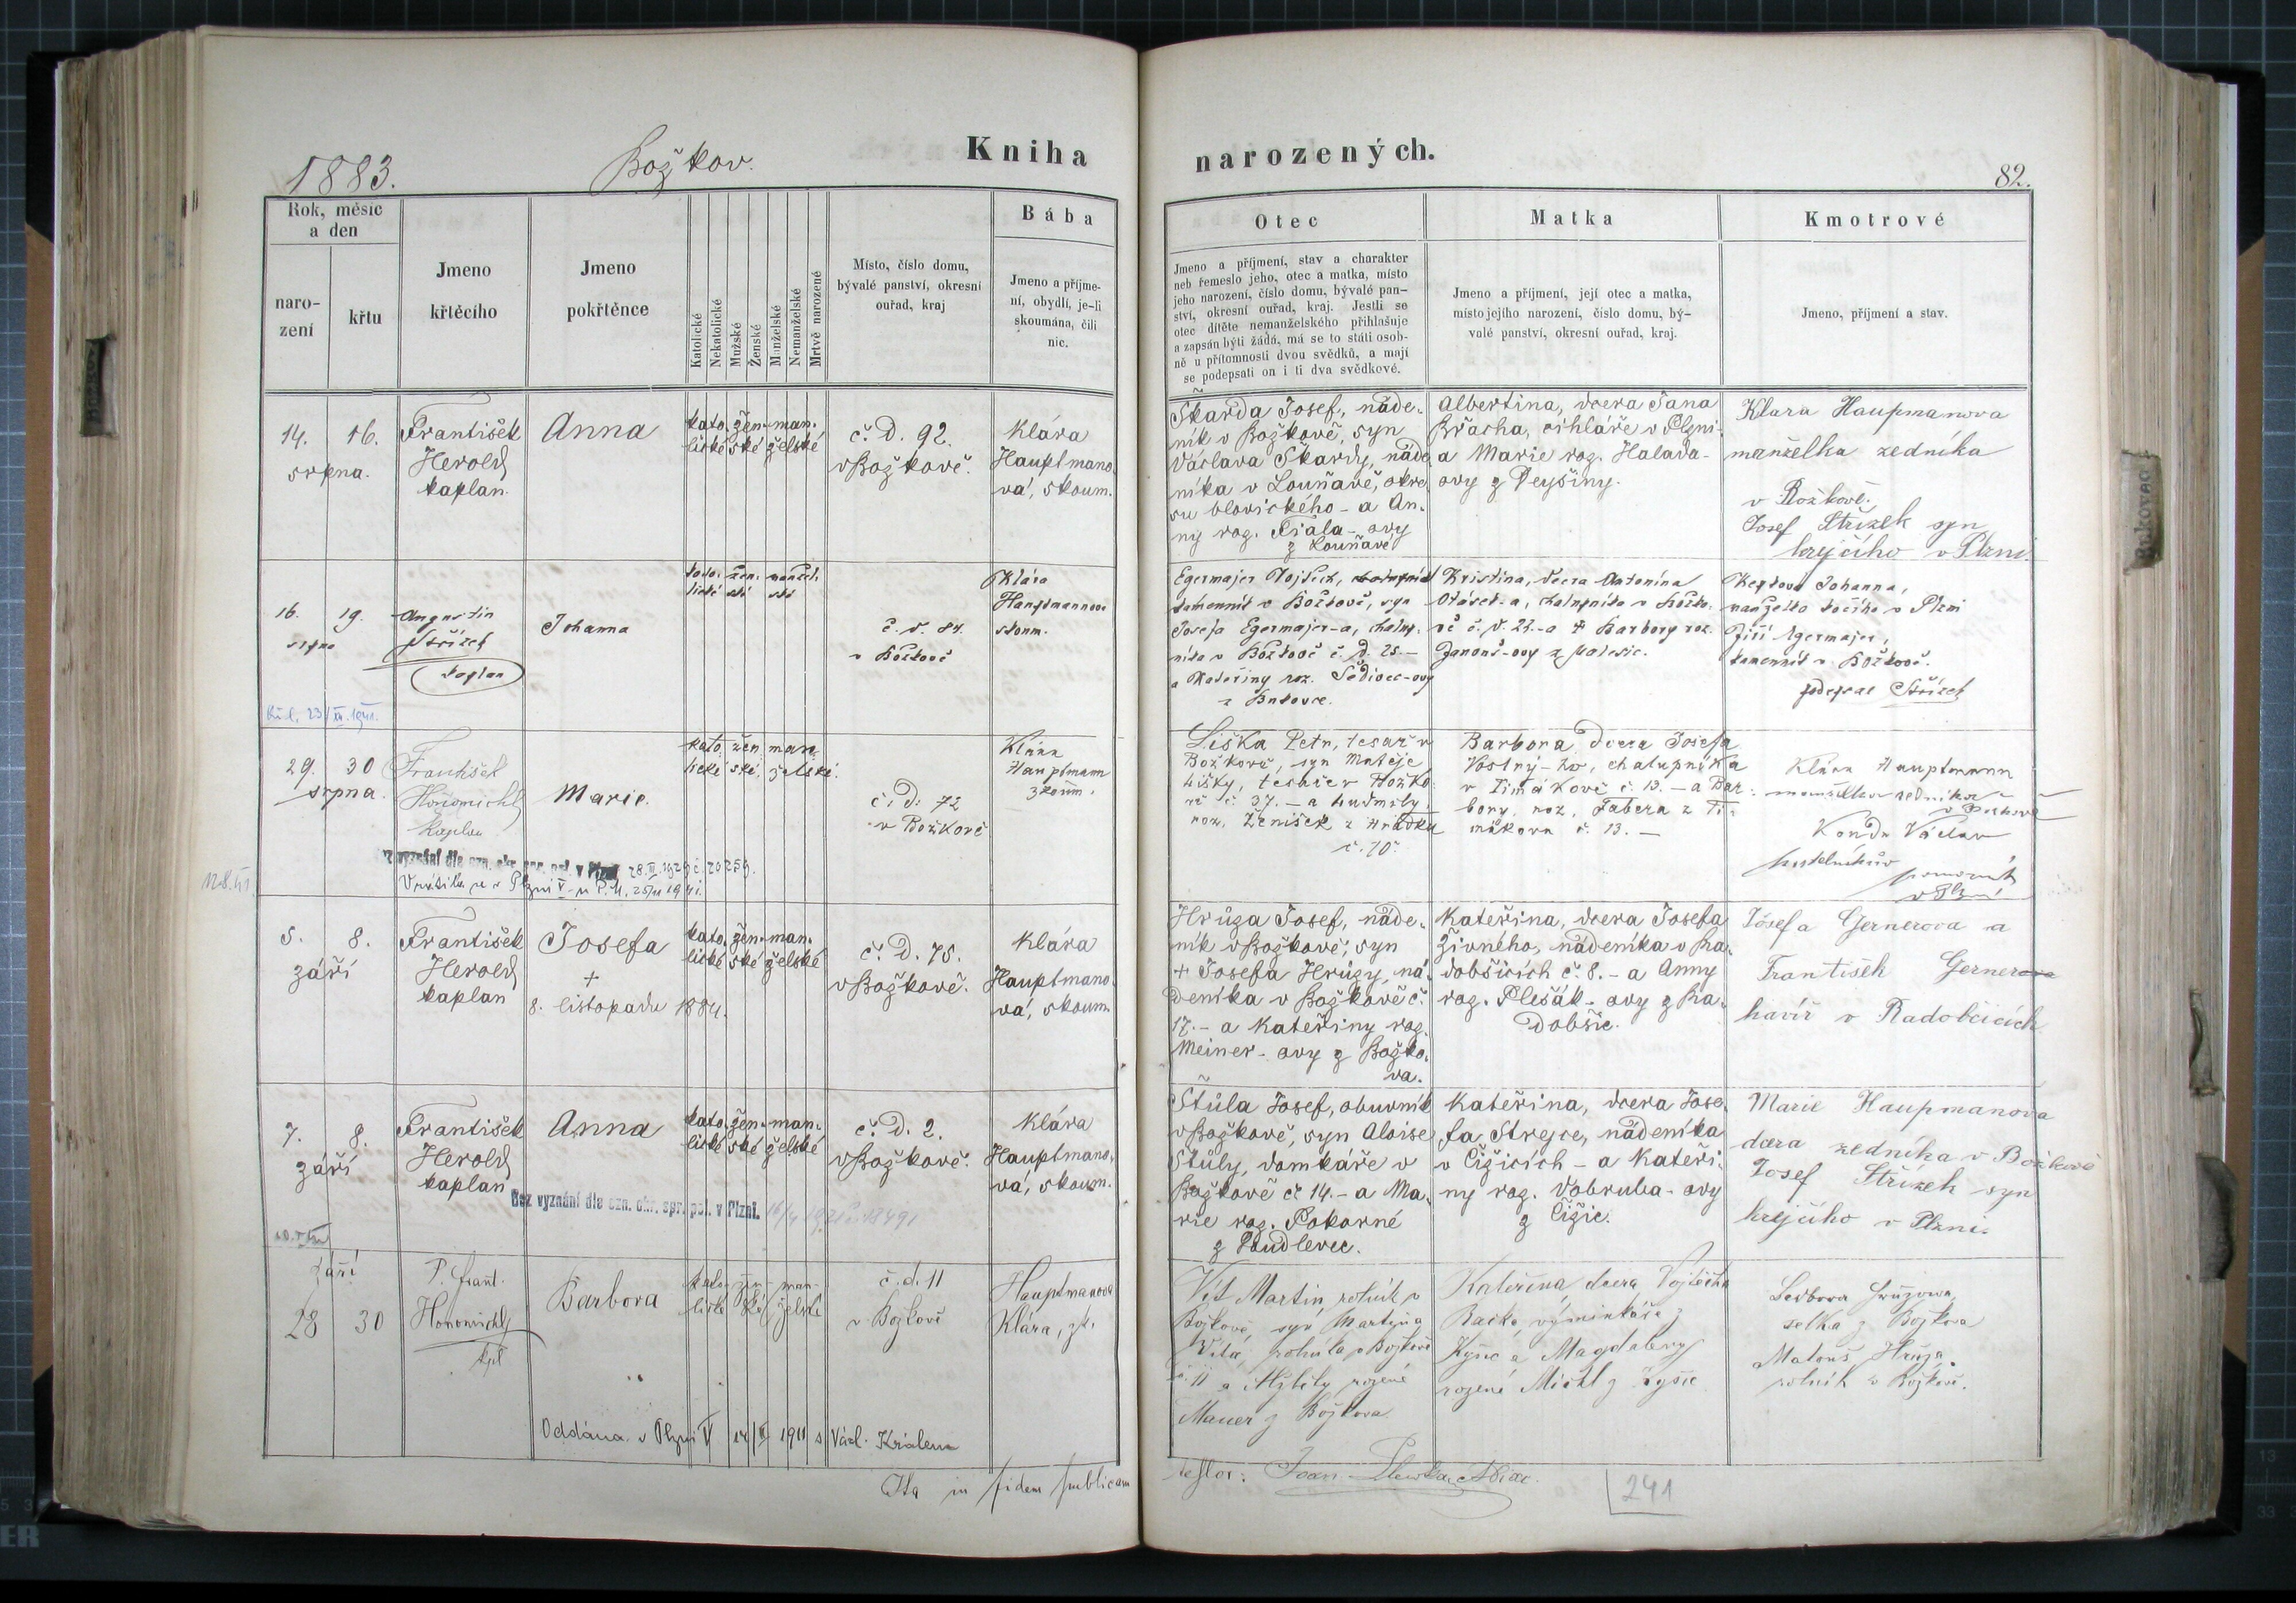 1883.
Božkov.
Kniha
Rok, měsíc
a den
naro-
zení
křtu
Jmeno
křtěcího
Jmeno
pokřtěnce
Katolické
Nekatolické
Mužské
Ženské
Manželské
Nemanželské
Mrtvě narozené
Místo, číslo domu,
bývalé panství, okresní
ouřad, kraj
Bába
Jmeno a příjme-
ní, obydlí, je-li
skoumána, čili
nic.
14. 16.
srpna.
František
Herold
kaplan.
Anna
kato. žen. man.
lické ské želské
č. D. 92.
v Božkově.
Klára
Hauptmano.
vá, skoum.
16. 19.
srpna
Augustin
Střízek
kaplan
Johanna
kato. žen. manžel.
lické ské ské
č. d. 84.
v Božkově
Klára
Hauptmannova
skoum.
23/XI. 1941.
29. 30
srpna.
František
Honomichl
kaplan
Marie.
kato žen man
lické ské. želské.
č. d. 72
v Božkově
Klára
Hauptmann
zkoum.
vyznání dle ozn. okr. spr. pol. v Plzni 28.II.1929 č. 20259.
Vrátila se v Plzni V
5. 8.
září
František
Herold
kaplan
Josefa
+
8. listopadu 1884.
kato. žen. man.
lické ské želské
č. D. 75.
v Božkově.
Klára
Hauptmano.
vá, skoum.
7. 8.
září
František
Herold
kaplan
Anna
kato. žen. man.
lické ské želské
č. D. 2.
v Božkově.
Klára
Hauptmano.
vá, skoum.
Bez vyznání dle ozn. okr. spr. pol. v Plzni.
září
28 30
P. Frant.
Honomichl
kpl
Barbora
kato- žen- man-
lické ské želské
č. d. 11
v Božkově
Hauptmanova
Klára, zk.
Oddána v Plzni V 14/II 1911 s Václ. Králem
Ita in fidem publicam
narozených.
82.
Otec
Jmeno a příjmení, stav a charakter
neb řemeslo jeho, otec a matka, místo
jeho narození, číslo domu, bývalé pan-
ství, okresní ouřad, kraj. Jestli se
otec dítěte nemanželského přihlašuje
a zapsán býti žádá, má se to státi osob-
ně u přítomnosti dvou svědků, a mají
se podepsati on i ti dva svědkové.
Matka
Jmeno a příjmení, její otec a matka,
místo jejího narození, číslo domu, bý-
valé panství, okresní ouřad, kraj.
Kmotrové
Jmeno, příjmení a stav.
Škarda Josef, náde-
ník v Božkově, syn
Václava Škardy, náde
níka v Louňavě, okre
su blovického - a An-
ny roz. Fiala-ovy
z Louňavé
Albertina, dcera Jana
Břacha, cihláře v Plzni
a Marie roz. Halada-
ovy z Deyšiny.
Klara Haupmanova
manželka zedníka
v Božkově.
Josef Střízek syn
krejčího v Plzni
Egermajer Vojtěch,
kamenník v Božkově, syn
Josefa Egermajer-a, chalup-
níka v Božkově č. D. 25. -
a Kateřiny roz. Šedivec-ovy
z Bukovce.
Kristina, dcera Antonína
Otásek-a, chalupníka v Božko-
vě č. d. 22. - a + Barbory roz.
Janouš-ovy z Malesic.
Johanna,
manželka kočího v Plzni
Jiří Egermajer,
kamenník v Božkově.
podepsal Střízek
Liška Petr, tesař v
Božkově, syn Matěje
Lišky, tesaře v Božko-
vě č. 37. - a Ludmily
roz. Ženíšek z Hrádku
č. 70.
Barbora dcera Josefa
Vostrý-ho, chalupníka
v Timákově č. 13. - a Bar-
bory, roz. Tabera z Ti-
mákova č. 13. -
Klára Hauptmann
manželka zedníka
v Božkově
Konda Václav
kostelníkův
pomocník
v Plzni
Hrůza Josef, náde-
ník v Božkově, syn
+ Josefa Hrůzy, ná-
deníka v Božkově č.
17. - a Kateřiny roz.
Meiner-ovy z Božko-
va.
Kateřina, dcera Josefa
Živného, nádeníka v Ra-
dobšicích č. 8. - a Anny
roz. Plešák-ovy z Ra-
dobšic.
Josefa Gernerova a
František Gerner
havíř v Radobčicích
Štůla Josef, obuvník
v Božkově, syn Aloise
Štůly, domkáře v
Božkově č. 14. - a Ma-
rie roz. Pokorné
z Doudlevec.
Kateřina, dcera Jose-
fa Strejce, nádeníka
v Čižicích - a Kateři-
ny roz. Dobruba-ovy
z Čižic.
Marie Haupmanova
dcera zedníka v Božkově
Josef Střízek syn
krejčího v Plzni.
Vít Martin rolník v
Božkově, syn Martina
Víta, rolníka v Božkově
č. 11 a rozené
Mauer z Božkova
Kateřina, dcera Vojtěcha
Bačka výminkáře z
Kyšic a Magdaleny
rozené Michl z Kyšic
Barbora Hrůzova
selka z Božkova
Matouš Hrůza,
rolník v Božkově.
testor: Joan
241